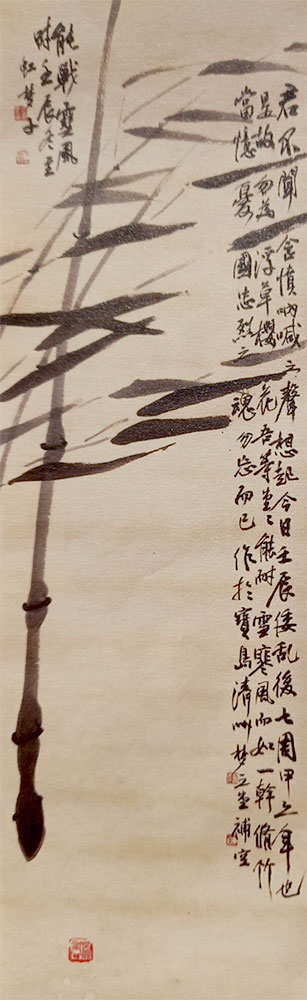 君不聞含憤吶喊之聲想起今日壬辰倭乱後七周甲之年也
是故勿為浮草櫻花吾等堂々能耐雪寒風而如一幹脩竹
當憶憂國忠烈之魂勿忘而已作於寶島清州梦之堂補空
能戰雪風
时壬辰冬至